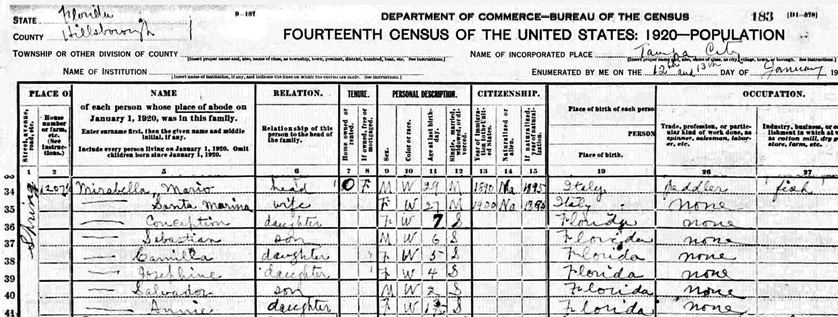 STATE Florida 9-187 DEPARTMENT OF COMMERCE—BUREAU OF THE CENSUS 183 [D1-878]
COUNTY Hillsborough FOURTEENTH CENSUS OF THE UNITED STATES: 1920—POPULATION
TOWNSHIP OR OTHER DIVISION OF COUNTY NAME OF INCORPORATED PLACE Tampa City
NAME OF INSTITUTION ENUMERATED BY ME ON THE 12th and 13th DAY OF January 19
PLACE OF NAME RELATION. TENURE. PERSONAL DESCRIPTION. CITIZENSHIP. OCCUPATION.
of each person whose place of abode on January 1, 1920, was in this family.
Enter surname first, then the given name and middle initial, if any.
Include every person living on January 1, 1920. Omit children born since January 1, 1920.
Street, avenue, road, etc.
House number or farm, etc. (See instructions.)
Relationship of this person to the head of the family.
Home owned or rented.
If owned, free or mortgaged.
Sex.
Color or race.
Age at last birthday.
Place of birth of each person
PERSON
Place of birth.
Trade, profession, or particular kind of work done, as spinner, salesman, laborer, etc.
1 2 5 6 7 8 9 10 11 12 13 14 15 19 26 27
34 Mirabella, Mario head O F M W 29 M 1890 Na 1895 Italy peddler fish
35 Santa Marina wife F W 27 M 1900 Na Italy none
36 Conception daughter F W 7 S Florida none
37 Sebastian son M W 6 S Florida none
38 Camilla daughter F W 5 S Florida none
39 Josephine daughter F W 4 S Florida none
40 Salvador son M W 2 S Florida none
41 Annie daughter F W S Florida none